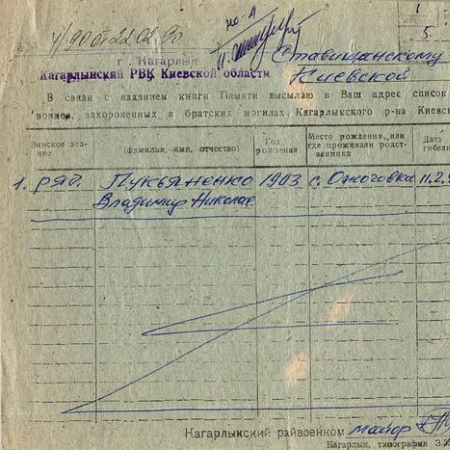 1
5
у/90 от 22.02.90
г. Кагарлык
Ставищанскому
Кагарлынский РВК Киевской области
Киевской
В связи с изданием книги Памяти высылаю в Ваш адрес список
воинов, захороненных в братских могилах, Кагарлыкского р-на Киевс
Воинское зва-
ние
(фамилия, имя, отчество)
Год
рождения
Место рождения, или
где проживали родст-
венники
Дата
гибели
1. ряд. Лукьяненко 1903 с. Ожоговка 11.2.
Владимир Николае
Кагарлыкский райвоенком майор
Кагарлык, типография З.